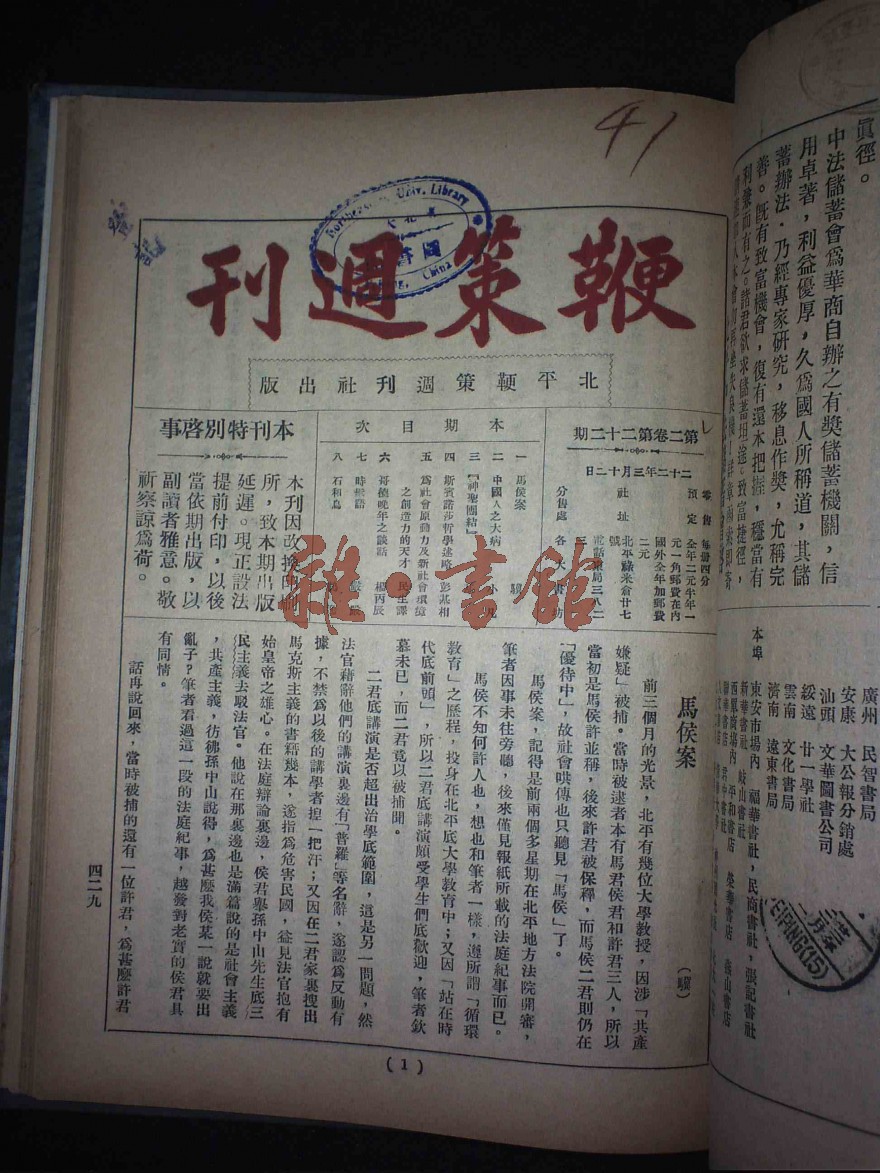 41
鞭策週刊
北平鞭策週刊社出版
第二卷第二十二期
二十二年三月十二日
零售 每冊四分
預定 全年二元半年一
元一角郵費在內
國外全年加郵費
二元
社址 北平祿米倉廿七
號
分售處 各大書
本期目次
一 馬侯案
二 中國人之大病
三 「神聖團結」
四 斯賓諾莎哲學述略 彭基相
五 為社會原動力及新社會環境
之創造力的天才 民生譯
六 哥德晚年之談話 楊丙辰
七
八 石和尚
本刊特別啓事
本刊因改換印刷
所，致本期出版
延遲。現正設法
提前付印，以後
當依期出版，以
副讀者雅意。敬
祈察諒爲荷。
馬侯案
前三個月的光景，北平有幾位大學教授，因涉「共產
嫌疑」被捕。當時被逮者本有馬君侯君和許君三人，所以
當初是馬侯許並稱，後來許君被保釋，而馬侯二君則仍在
「優待中」，故社會哄傳也只聽見「馬侯」了。
馬侯案，記得是前兩個多星期在北平地方法院開審，
筆者因事未往旁聽，後來僅見報紙所載的法庭紀事而已。
馬侯不知何許人也，想也和筆者一樣，遵所謂「循環
教育」之歷程，投身在北平底大學教育中；又因「站在時
代底前頭」，所以二君底講演頗受學生們底歡迎，筆者欽
慕未已，而二君竟以被捕聞。
二君底講演是否超出治學底範圍，這是另一問題，然
法官藉辭他們的講演裏邊有「普羅」等名辭，遂認爲反動有
據，不禁爲以後的講學者捏一把汗；又因在二君家裏搜出
馬克斯主義的書籍幾本，遂指爲危害民國，益見法官抱有
始皇帝之雄心。在法庭辯論裏邊，侯君舉孫中山先生底三
民主義去駁法官。他說在那裏邊也是滿篇說的是社會主義
，共產主義，彷彿孫中山說得，爲甚麼我侯某一說就要出
亂子？筆者看過這一段的法庭紀事，越發對老實的侯君具
有同情。
話再說回來，當時被捕的還有一位許君，爲甚麼許君
四二九
(1)
雜·書館
Univ. Library
China
眞徑。
中法儲蓄會爲華商自辦之有獎儲蓄機關，信
用卓著，利益優厚，久爲國人所稱道，其儲
蓄辦法，乃經專家研究，移息作獎，尤稱完
善。旣有致富機會，復有還本把握，穩當有
利兼而有之。諸君欲求儲蓄坦途，致富捷徑，
廣州 民智書局
安康 大公報分銷處
汕頭 文華圖書公司
綏遠 廿一學社
雲南 文化書局
濟南 遠東書局
本埠
東安市場內 福華書社，民商書社，張記書社
新華書社 岐山書社
西單商場內 平和書店
PEIPING(15)